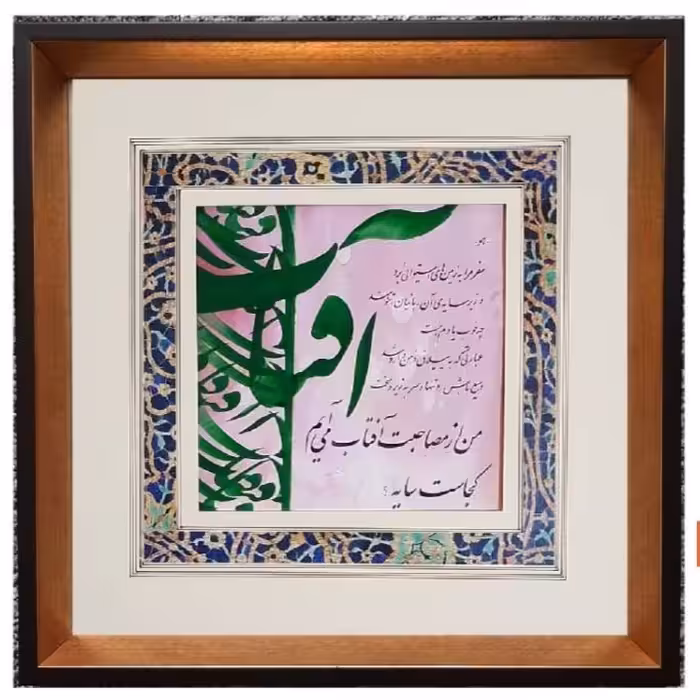 آفتاب
هو
سفر مرا به زمین‌های استوایی برد
و زیر سایه‌ی آن بانیان تنومند
چه خوب یادم هست
عبارتی که به ییلاق ذهن وارد شد
وسیع باش و تنها و سر به زیر و سخت
من از مصاحبت آفتاب می‌آیم
کجاست سایه؟